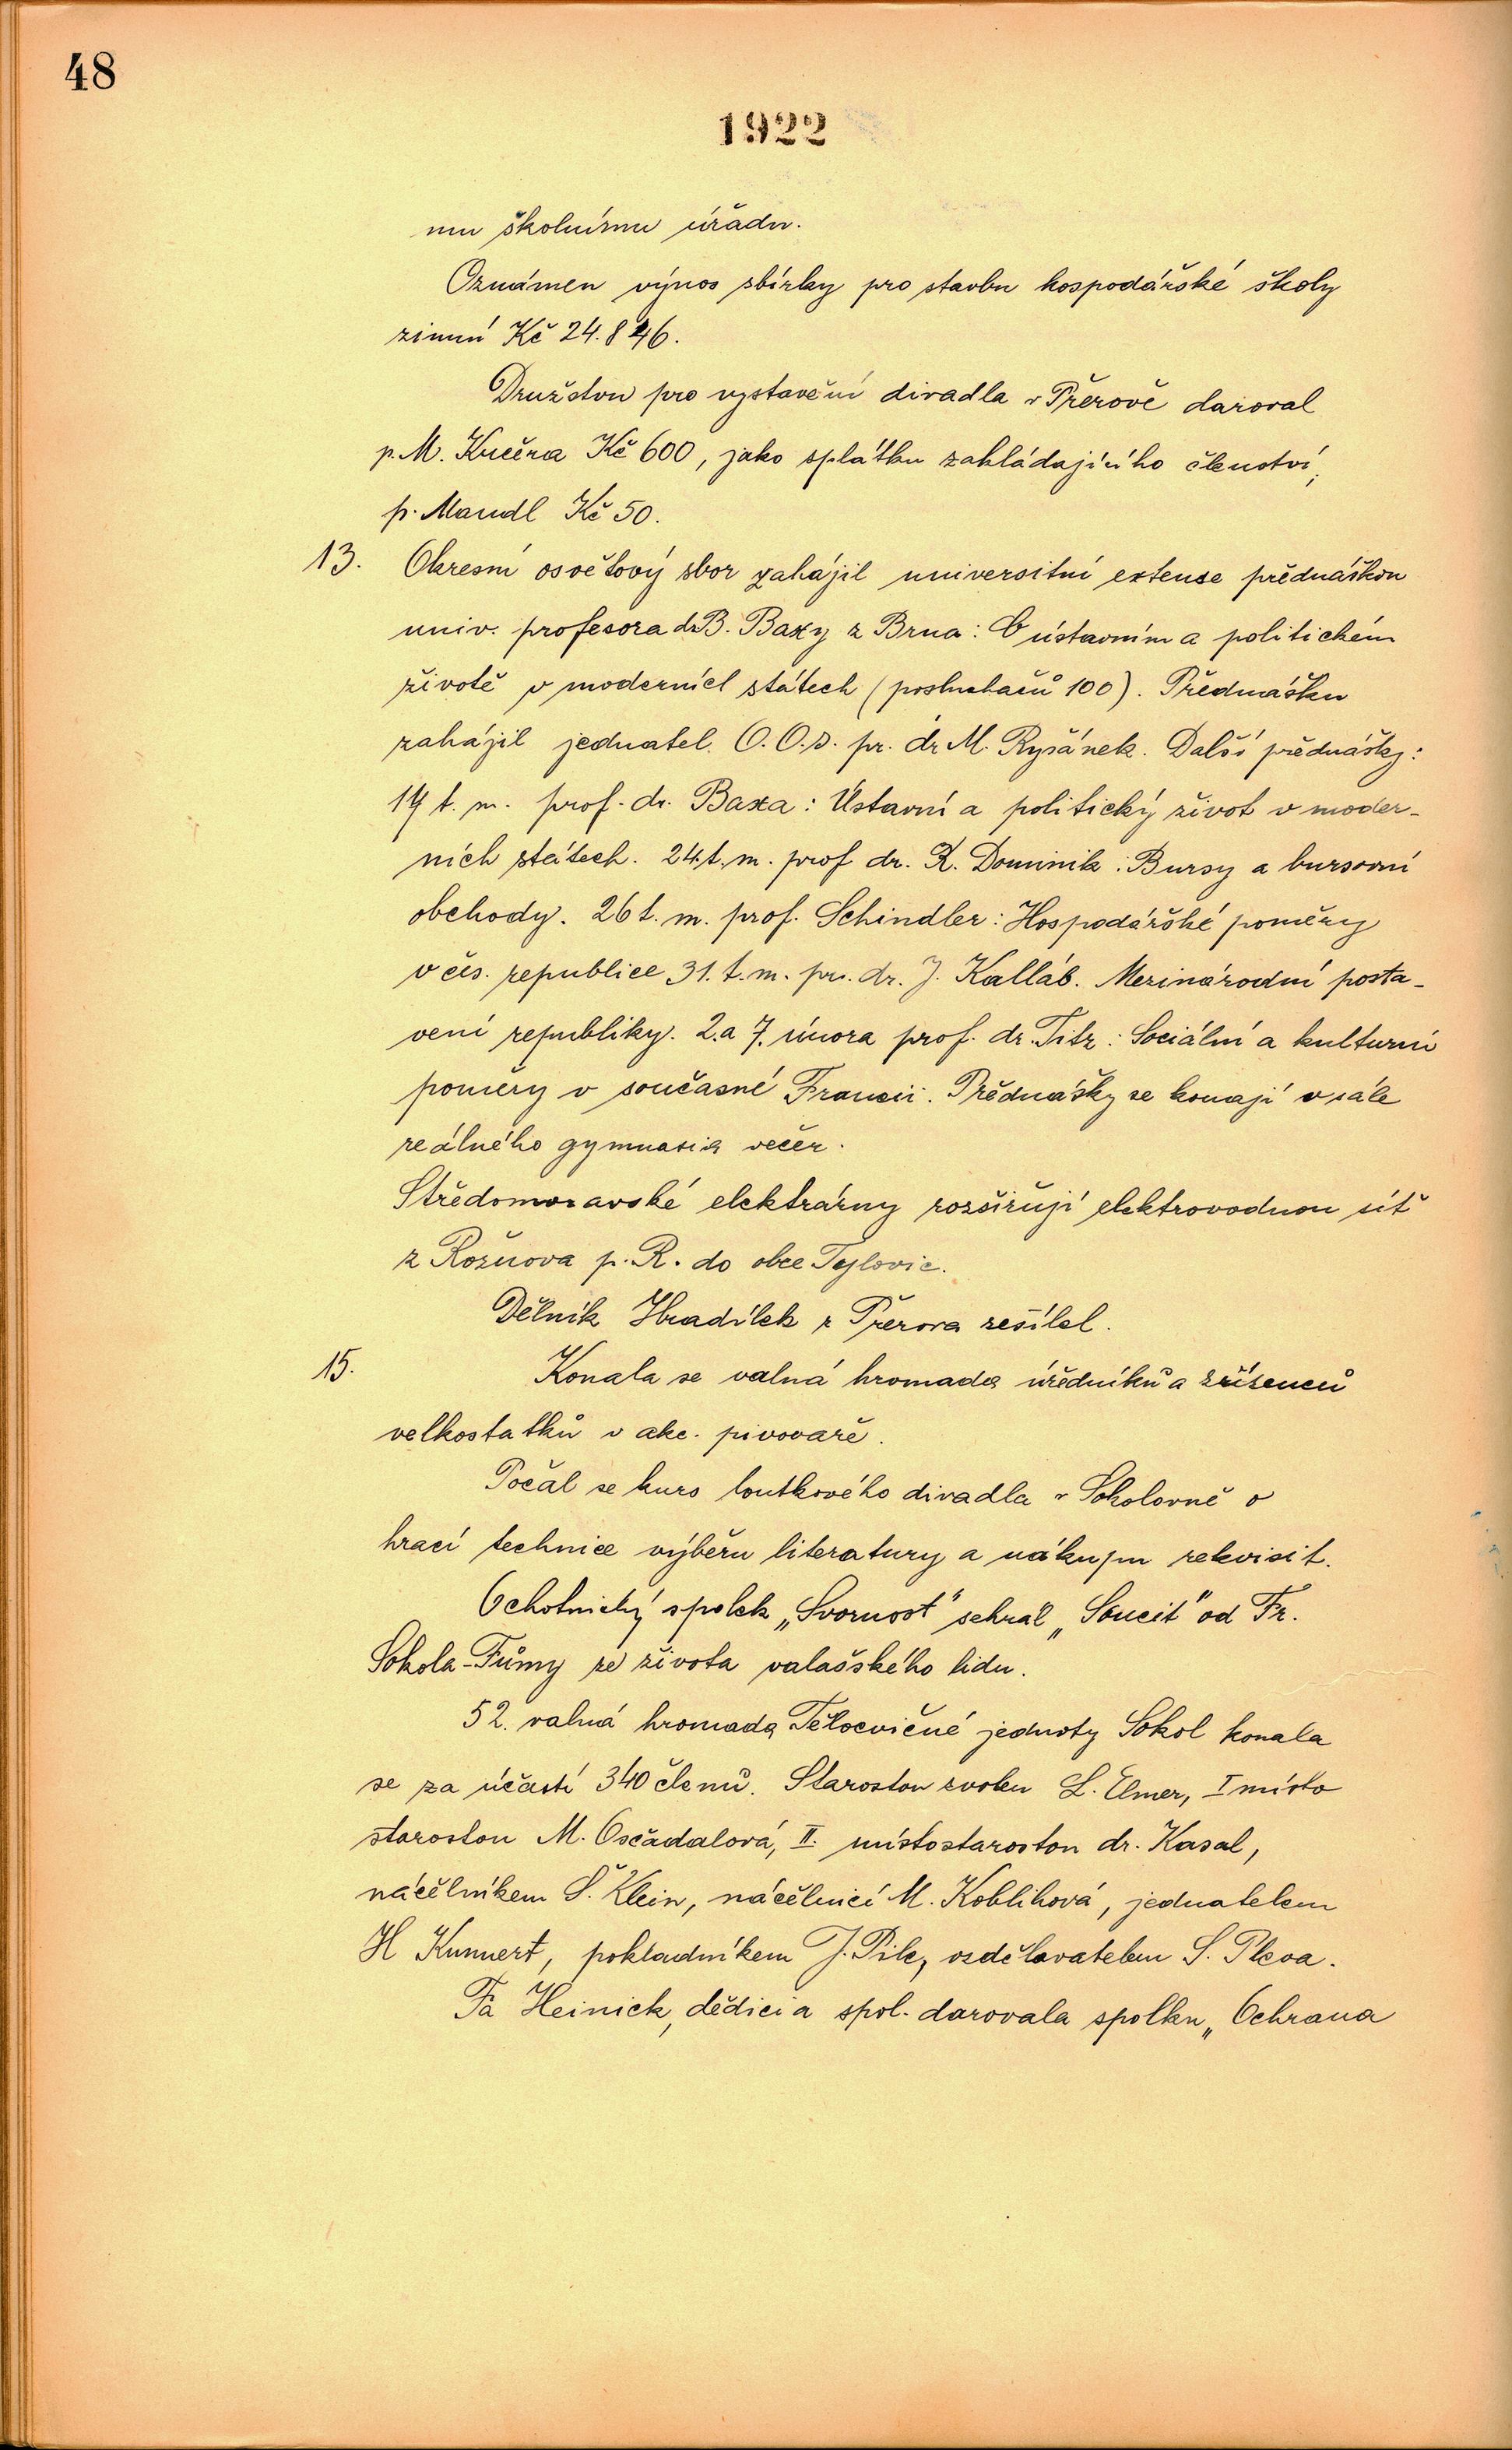 48
1922
mu školnímu úřadu.
Oznámen výnos sbírky pro stavbu hospodářské školy
zimní Kč 24.846.
Družstvu pro vystavění divadla v Přerově daroval
p. M. Kučera Kč 600, jako splátku zakládajícího členství,
p. Mandl Kč 50.
13. Okresní osvětový sbor zahájil universitní extense přednáškou
univ. profesora dr B. Baxy z Brna: O ústavním a politickém
životě v moderních státech (posluchačů 100). Přednášku
zahájil jednatel. O.O.s. pr. dr M. Ryšánek. Další přednášky:
19 t. m. prof. dr. Baxa: Ústavní a politický život v moder-
ních státech. 24.t.m. prof dr. R. Dominik: Bursy a bursovní
obchody. 26 t. m. prof. Schindler: Hospodářské poměry
v čs. republice 31. t. m. pr. dr. J. Kalláb. Mezinárodní posta-
vení republiky. 2. a 7. února prof. dr. Titz: Sociální a kulturní
poměry v současné Francii. Přednášky se konají v sále
reálného gymnasia večer.
Středomoravské elektrárny rozšiřují elektrovodnou síť
z Rožnova p. R. do obce Tylovic.
Dělník Hradílek z Přerova zešílel.
15. Konala se valná hromada úředníků a zřízenců
velkostatků v akc. pivovaře.
Počal se kurs loutkového divadla v Sokolovně o
hrací technice výběru literatury a nákupu rekvisit.
Ochotnický spolek „Svornost" sehrál „Soucit" od Fr.
Sokola-Tůmy ze života valašského lidu.
52. valná hromada Tělocvičné jednoty Sokol konala
se za účasti 340 členů. Starostou zvolen L. Elmer, I místo
starostou M. Osčádalová, II. místostarostou dr. Kasal,
náčelníkem Š. Klein, náčelnicí M. Koblihová, jednatelem
H Kunnert, pokladníkem J. Pilc, vzdělavatelem S. Pleva.
Fa Heinick, dědici a spol. darovala spolku „Ochrana